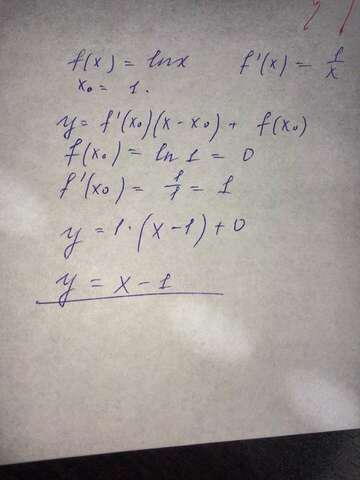 f(x) = lnx f'(x) = 1/x
x₀ = 1.
y = f'(x₀)(x - x₀) + f(x₀)
f(x₀) = ln 1 = 0
f'(x₀) = 1/1 = 1
y = 1 · (x - 1) + 0
y = x - 1